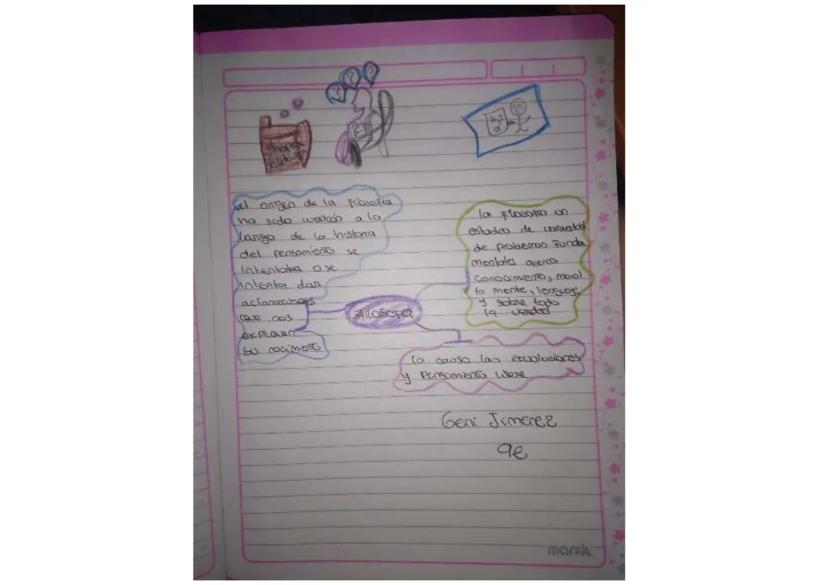 ? ? ?
el origen de la filosofia
ha sido cuestión a lo
largo de la historia
del pensamiento se
intentaba o se
intenta dar
aclaraciones
que nos
expliquen
su nacimiento
Filosofia
la filosofia un
estudio de
de problemas funda
mentales acerca
conocimiento, moral
la mente, lenguaje
y sobre todo
la verdad
la causa las
y Pensamiento libre
Geni Jimenez
9e